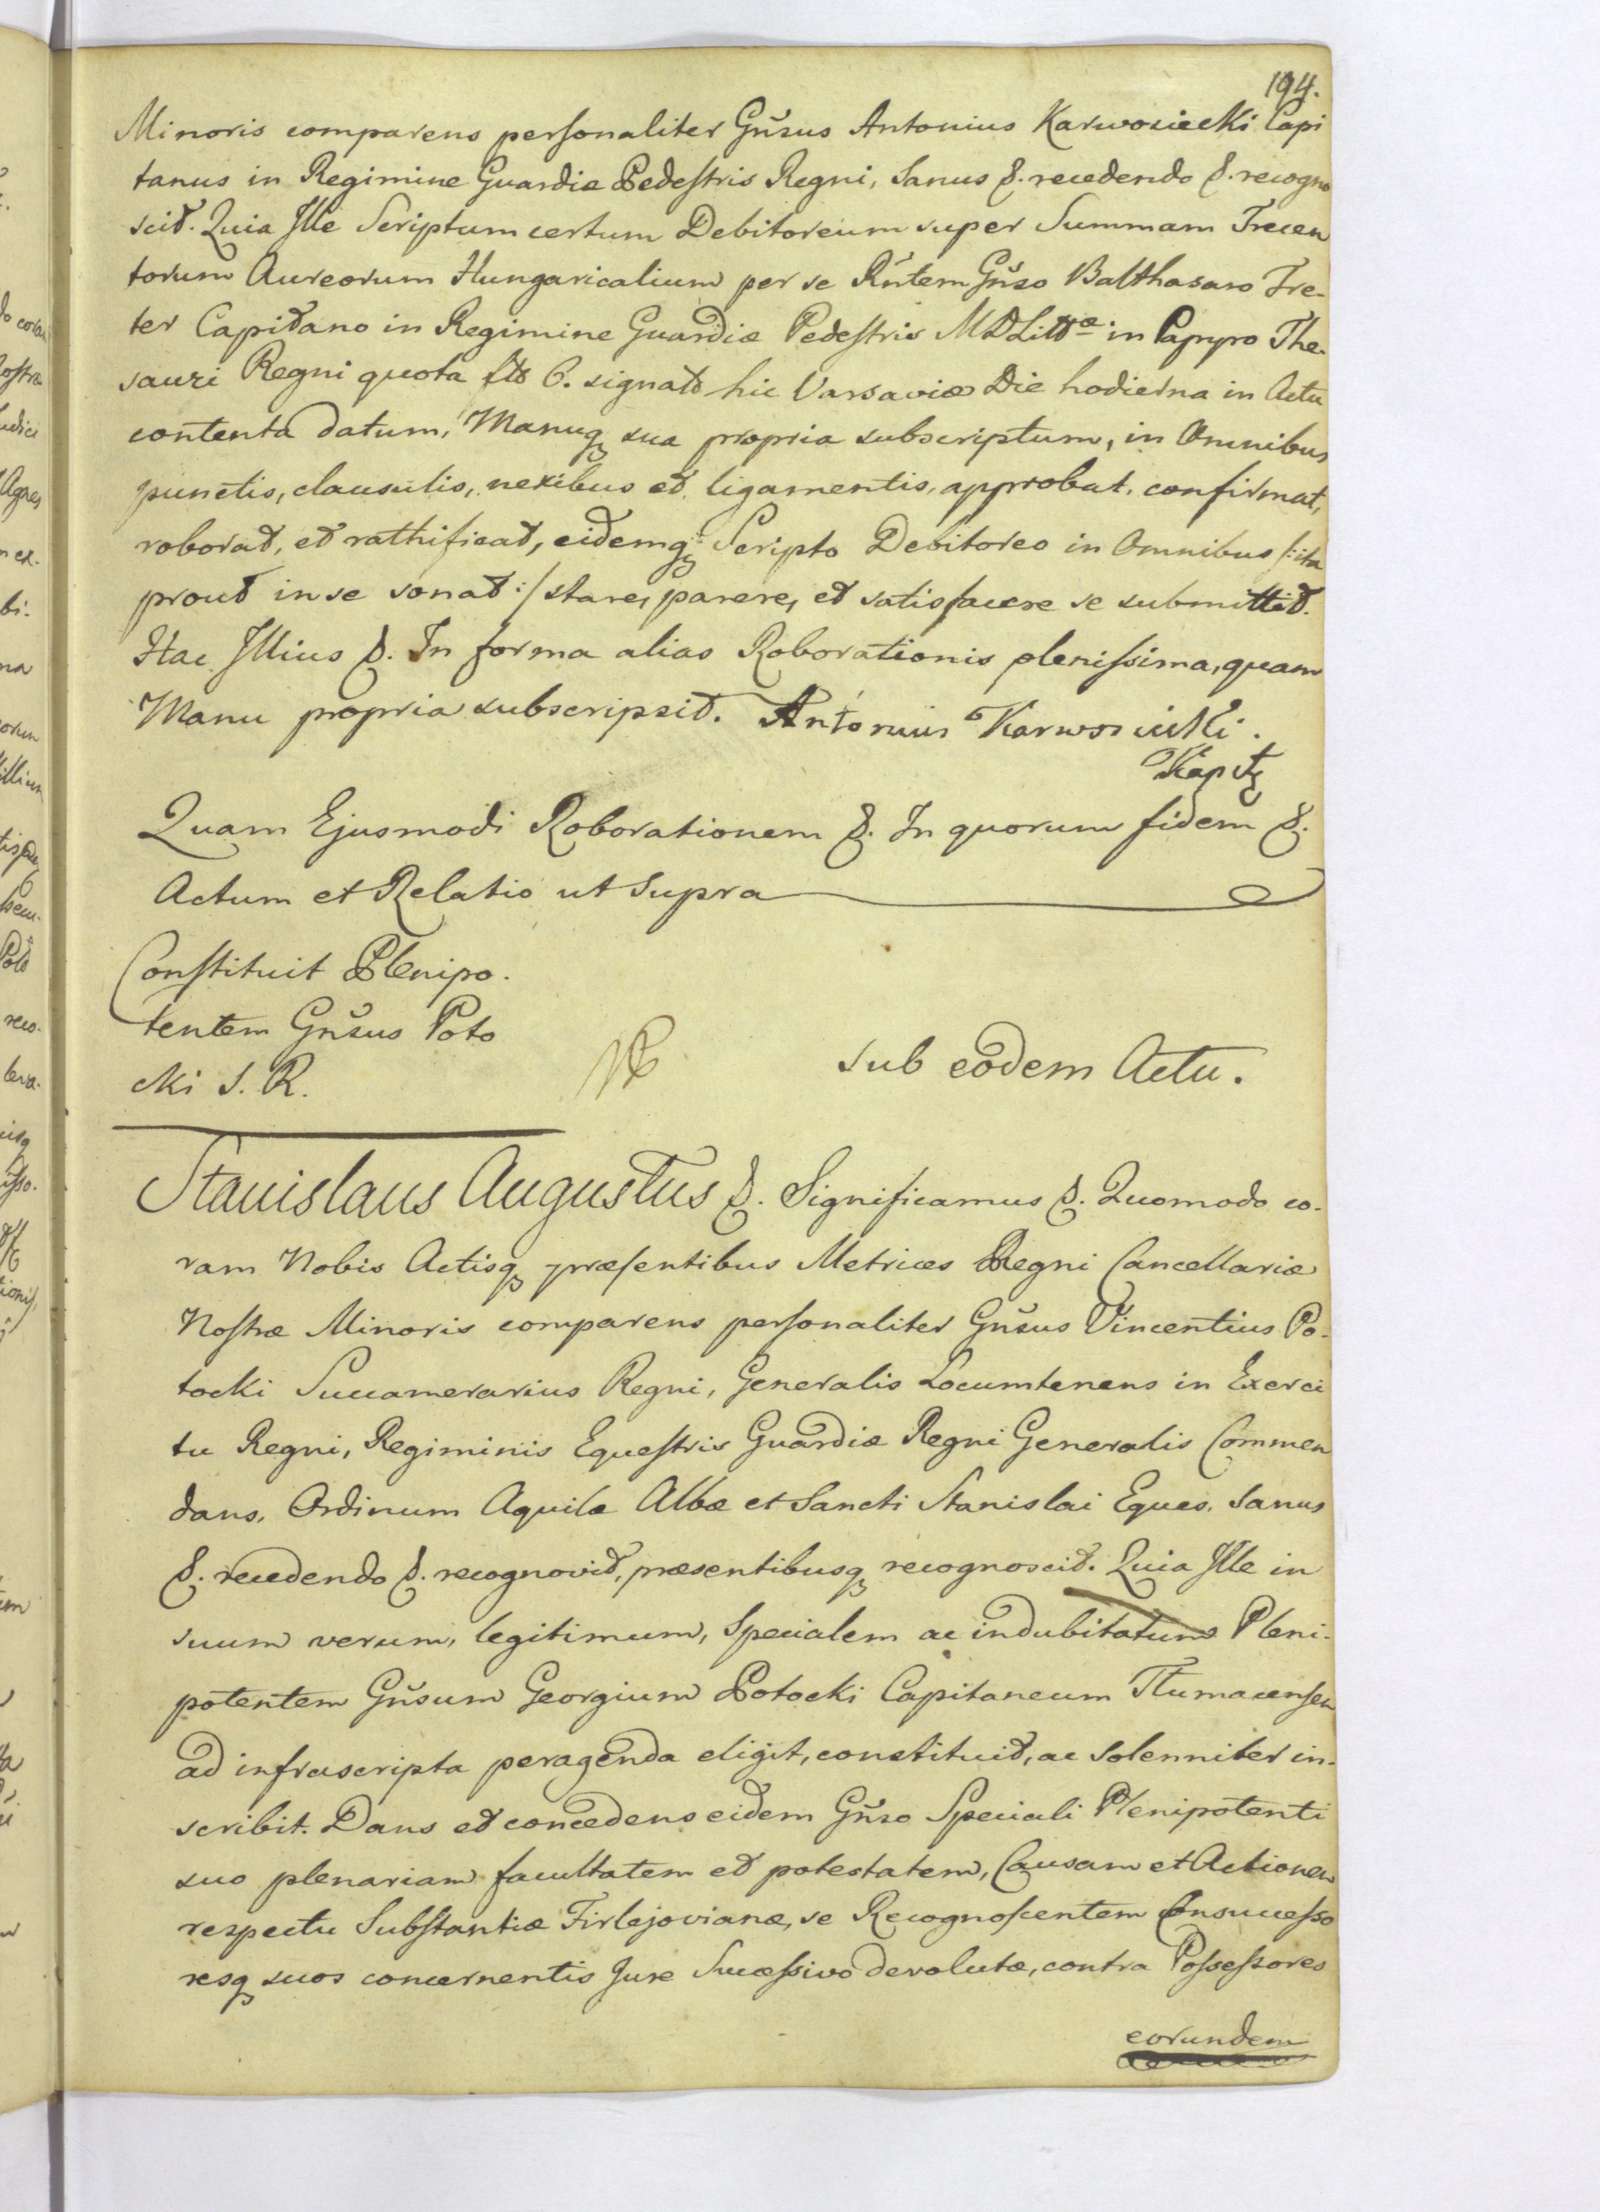 194.
Minoris comparens personaliter Gn̄sus Antonius Karwosiecki Capi
tanus in Regimine Guardiæ Pedestris Regni, Sanus &. recedendo &. recogno
scit. Quia Ille Scriptum certum Debitoreum super Summam Trecen
torum Aureorum Hungaricalium per se Rn̄tem Gn̄so Balthasaro Tre-
ter Capitano in Regimine Guardiæ Pedestris MDLittæ in Papyro The-
sauri Regni quota 6. signato hic Varsaviæ Die hodierna in Actu
contenta datum, Manuq sua propria subscriptum, in Omnibus
punctis, clausulis, nexibus et ligamentis, approbat, confirmat,
roborat, et rathificat, eidemq Scripto Debitoreo in Omnibus /:ita
prout in se sonat:/ stare, parere, et satisfacere se submittit.
Hac Illius &. In forma alias Roborationis plenissima, quam
Manu propria subscripsit. Antonius Karwosiecki.
Kapit
Quam Ejusmodi Roborationem &. In quorum fidem &.
Actum et Relatio ut Supra
Constituit Plenipo.
tentem Gn̄sus Poto
cki S. R.
sub eodem Actu.
Stanislaus Augustus &. Significamus &. Quomodo co-
ram Nobis Actisq præsentibus Metrices Regni Cancellariæ
Nostræ Minoris comparens personaliter Gn̄sus Vincentius Po-
tocki Succamerarius Regni, Generalis Locumtenens in Exerci
tu Regni, Regiminis Equestris Guardiæ Regni Generalis Commen
dans, Ordinum Aquilæ Albæ et Sancti Stanislai Eques, Sanus
&. recedendo &. recognovit, præsentibusq recognoscit. Quia Ille in
suum verum, legitimum, Specialem ac indubitatum Pleni-
potentem Gn̄sum Georgium Potocki Capitaneum Tłumacensem
ad infrascripta peragenda eligit, constituit, ac Solenniter in-
scribit. Dans et concedens eidem Gn̄so Speciali Plenipotenti
suo plenariam facultatem et potestatem, Causam et Actionem
respectu Substantiæ Firlejovianæ, se Recognoscentem Consuccesso
resq suos concernentis Jure Successivo devolutæ, contra Possessores
eorundem